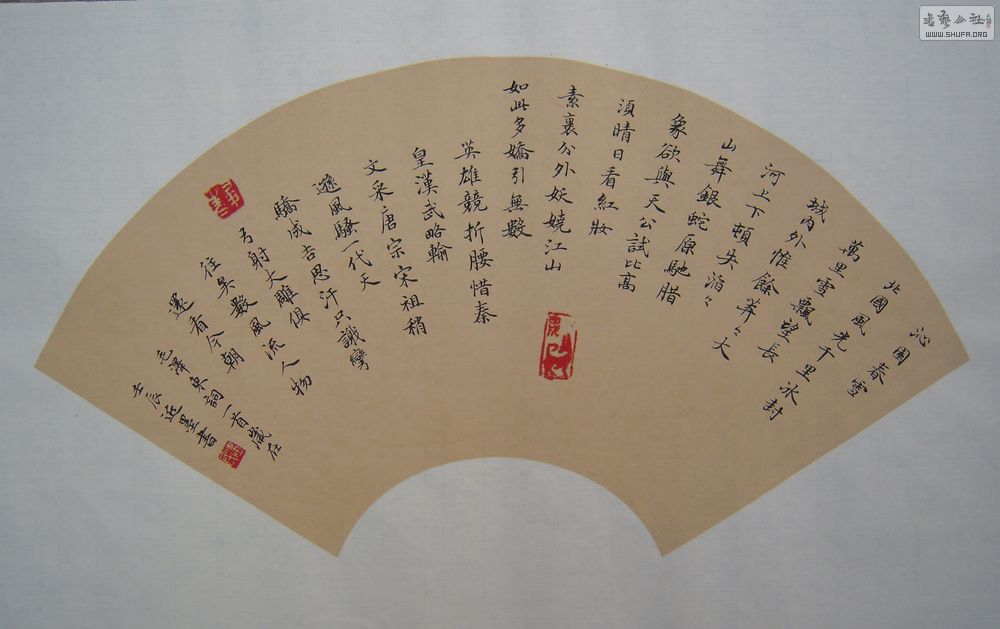 沁園春雪
北國風光千里冰封
萬里雪飄望長
城內外惟餘莽々大
河上下頓失滔々
山舞銀蛇原馳腊
象欲與天公試比高
須晴日看紅妝
素裹分外妖嬈江山
如此多嬌引無數
英雄競折腰惜秦
皇漢武略輸
文采唐宗宋祖稍
遜風騷一代天
驕成吉思汗只識彎
弓射大雕俱
往矣數風流人物
還看今朝
毛澤東詞一首歲在
壬辰 墨書
書藝公社
WWW.SHUFA.ORG